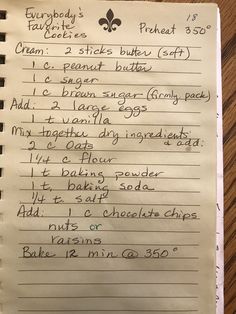 Everybody's 18
Favorite Preheat 350°
Cookies
Cream: 2 sticks butter (soft)
1 c. peanut butter
1 c sugar
1 c brown sugar (firmly pack)
Add: 2 large eggs
1 t vanilla
Mix together dry ingredients & add:
2 c Oats
1 1/4 c flour
1 t baking powder
1 t. baking soda
1/4 t. salt
Add: 1 c chocolate chips
nuts or
raisins
Bake 12 min @ 350°